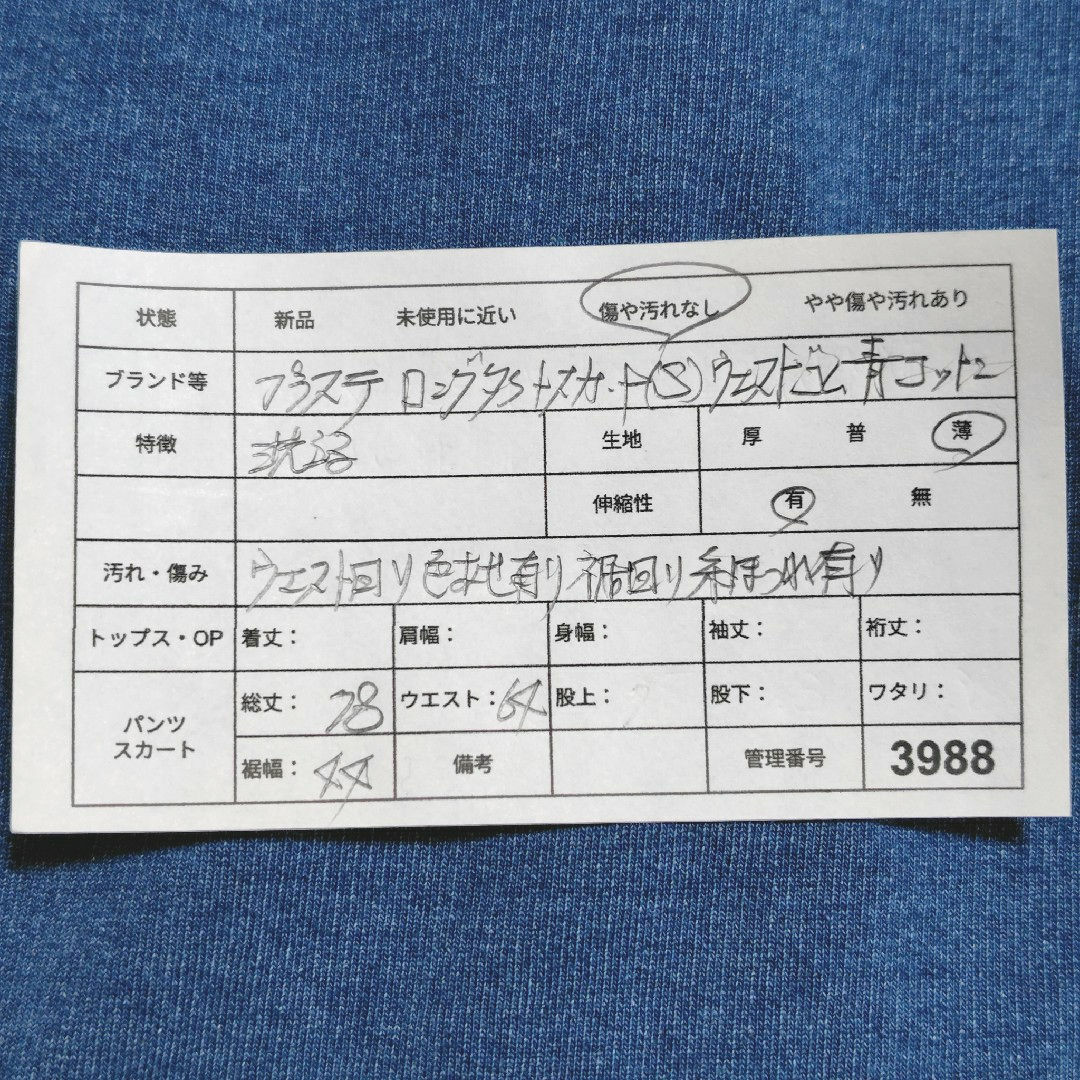 状態 新品 未使用に近い 傷や汚れなし やや傷や汚れあり
ブランド等 プラステ ロングタイトスカート(S) ウエストゴム 青 コットン
特徴 洗濯 生地 厚 普 薄
伸縮性 有 無
汚れ・傷み ウエスト回り色あせ有り 裾回り糸ほつれ有り
トップス・OP 着丈: 肩幅: 身幅: 袖丈: 裄丈:
パンツ スカート 総丈: 78 ウエスト: 64 股上: 股下: ワタリ:
裾幅: 44 備考 管理番号 3988